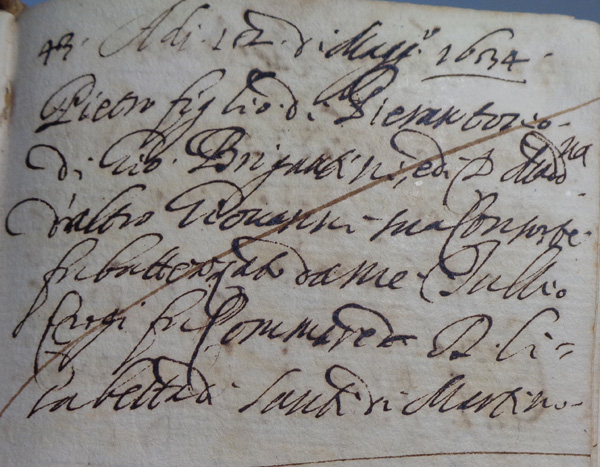 43. Adi 12. di Magg.o 1634.
Pietro figlio di Pierantonio
di Gio. Brigantini, e di D. Madna
d'altro Giovanni sua Consorte
fu battezzato da me Tullio
fu Commare D. Li=
sabetta di Santi di Martino